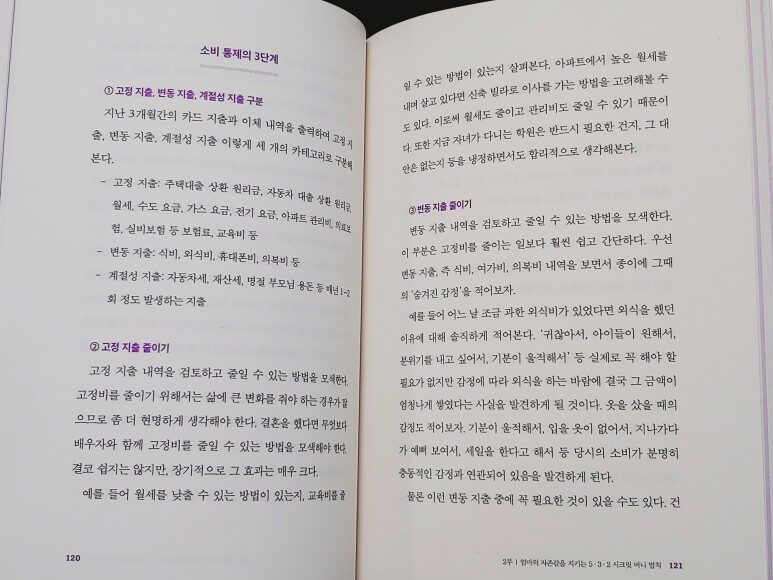 소비 통제의 3단계
① 고정 지출, 변동 지출, 계절성 지출 구분
지난 3개월간의 카드 지출과 이체 내역을 출력하여 고정 지
출, 변동 지출, 계절성 지출 이렇게 세 개의 카테고리로 구분해
본다.
- 고정 지출: 주택대출 상환 원리금, 자동차 대출 상환 원리금,
월세, 수도 요금, 가스 요금, 전기 요금, 아파트 관리비, 의료보
험, 실비보험 등 보험료, 교육비 등
- 변동 지출: 식비, 외식비, 휴대폰비, 의복비 등
- 계절성 지출: 자동차세, 재산세, 명절 부모님 용돈 등 매년 1~2
회 정도 발생하는 지출
② 고정 지출 줄이기
고정 지출 내역을 검토하고 줄일 수 있는 방법을 모색한다.
고정비를 줄이기 위해서는 삶에 큰 변화를 줘야 하는 경우가 많
으므로 좀 더 현명하게 생각해야 한다. 결혼을 했다면 무엇보다
배우자와 함께 고정비를 줄일 수 있는 방법을 모색해야 한다.
결코 쉽지는 않지만, 장기적으로 그 효과는 매우 크다.
예를 들어 월세를 낮출 수 있는 방법이 있는지, 교육비를 줄
120
일 수 있는 방법이 있는지 살펴본다. 아파트에서 높은 월세를
내며 살고 있다면 신축 빌라로 이사를 가는 방법을 고려해볼 수
도 있다. 이로써 월세도 줄이고 관리비도 줄일 수 있기 때문이
다. 또한 지금 자녀가 다니는 학원은 반드시 필요한 건지, 그 대
안은 없는지 등을 냉정하면서도 합리적으로 생각해본다.
③ 변동 지출 줄이기
변동 지출 내역을 검토하고 줄일 수 있는 방법을 모색한다.
이 부분은 고정비를 줄이는 일보다 훨씬 쉽고 간단하다. 우선
변동 지출, 즉 식비, 여가비, 의복비 내역을 보면서 종이에 그때
의 ‘숨겨진 감정’을 적어보자.
예를 들어 어느 날 조금 과한 외식비가 있었다면 외식을 했던
이유에 대해 솔직하게 적어본다. ‘귀찮아서, 아이들이 원해서,
분위기를 내고 싶어서, 기분이 울적해서’ 등 실제로 꼭 해야 할
필요가 없지만 감정에 따라 외식을 하는 바람에 결국 그 금액이
엄청나게 쌓였다는 사실을 발견하게 될 것이다. 옷을 샀을 때의
감정도 적어보자. 기분이 울적해서, 입을 옷이 없어서, 지나가다
가 예뻐 보여서, 세일을 한다고 해서 등 당시의 소비가 분명히
충동적인 감정과 연관되어 있음을 발견하게 된다.
물론 이런 변동 지출 중에 꼭 필요한 것이 있을 수도 있다. 건
2부 | 엄마의 자존감을 지키는 5·3·2 시크릿 머니 법칙 121